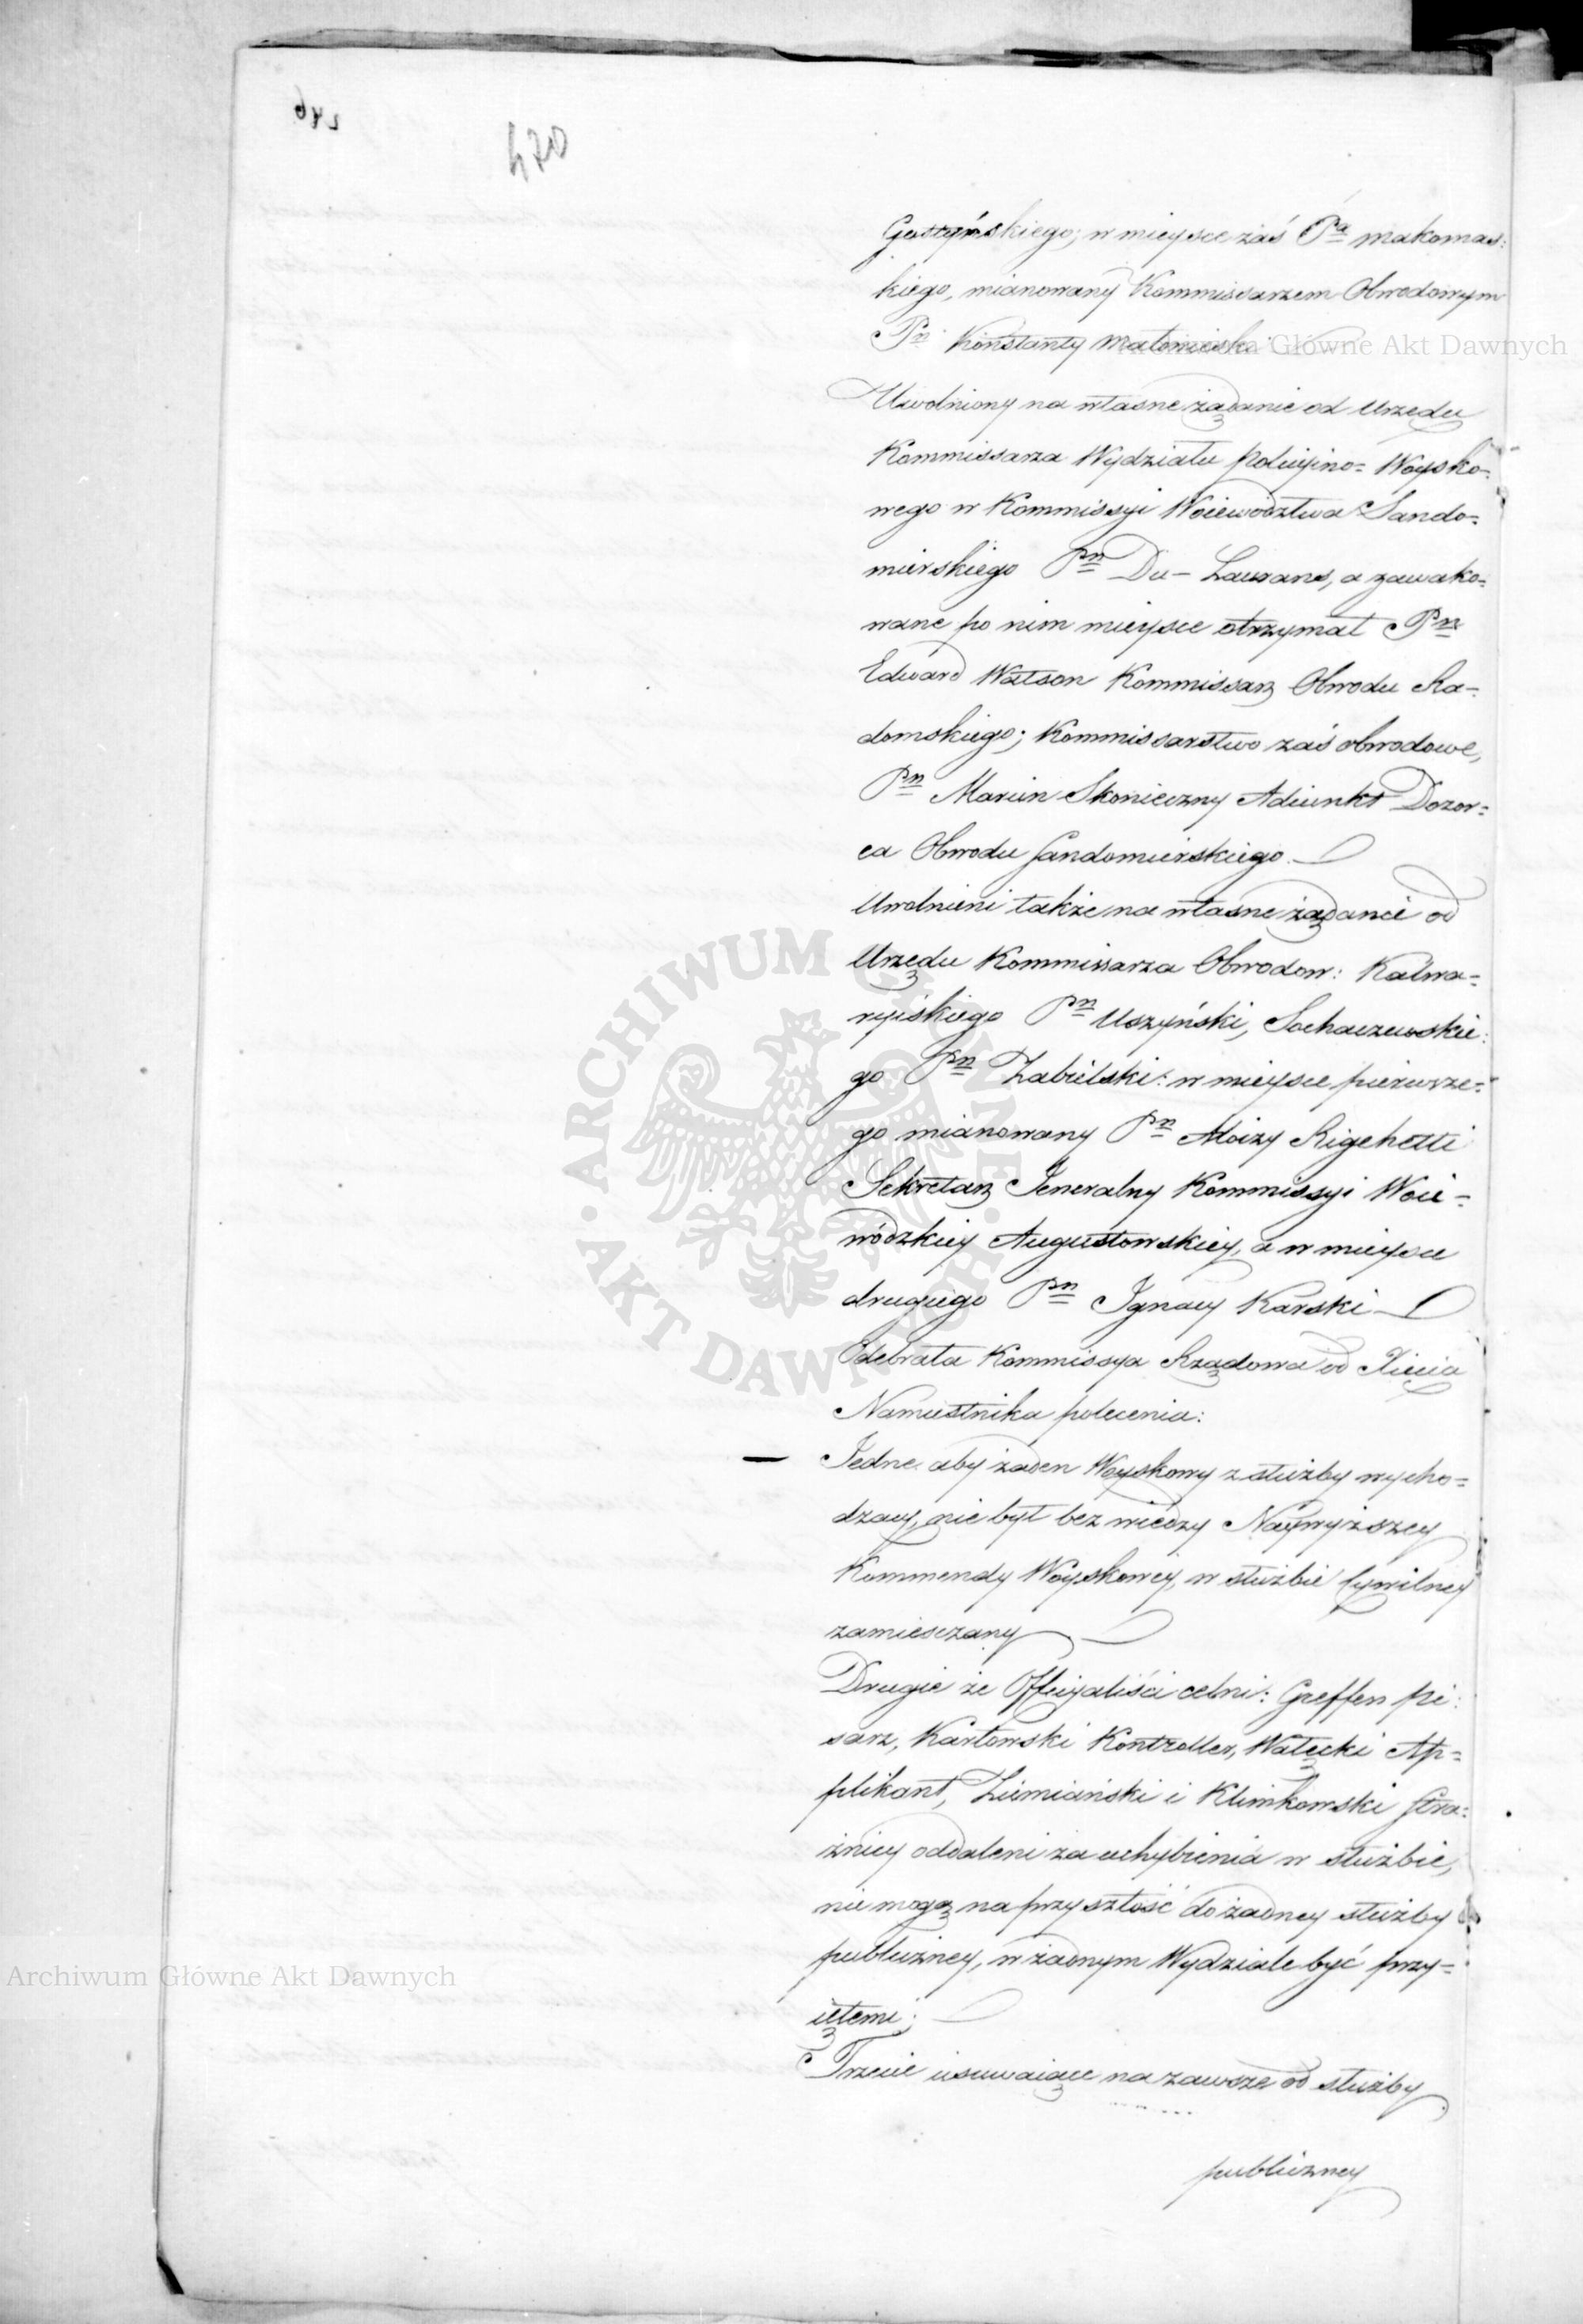 470
Gostyńskiego; w mieysce zaś Pa Makomas:
kiego, mianowany Kommissarzem Obwodowym
Pn Konstanty
Uwolniony na własne żądanie od Urzędu
Kommissarza Wydziału Policyino= Woysko=
wego w Kommissyi Woiewodztwa Sando=
mirskiego Pn Du-Laurans, a zawako=
wane po nim mieysce otrzymał Pn
Edward Watson Kommissarz Obwodu Ra=
domskiego; Kommissarstwo zaś obwodowe,
Pn Marcin Skonieczny Adiunkt Dozor=
ca Obwodu Sandomirskiego.
Uwolnieni także na własne żądanie od
Urzędu Kommissarza Obwodow: Kalwa=
ryiskiego Pn Uszyński, Sochaczewskie:
go Pn Zabielski: w mieysce pierwsze=
go mianowany Pn Aloizy Righetti
Sekretarz Jeneralny Kommissyi Woie=
wódzkiey Augustowskiey, a w mieysce
drugiego Pn Ignacy Karski
Odebrała Kommissya Rządowa od Xięcia
Namiestnika polecenia:
Jedne. aby żaden Woyskowy z służby wycho=
dzący, nie był bez wiedzy Naywyższey
Kommendy Woyskowey, w służbie Cywilney
zamiesczany
Drugie że Officyaliści celni: Greffen Pi:
sarz, Karłowski Kontroller, Wałęcki Ap=
plikant, Ziemiański i Klimkowski Stra:
żnicy oddaleni za uchybienia w służbie,
nie mogą na przyszłość do żadney służby
publiczney, w żadnym Wydziale być przy=
iętemi;
Trzecie usuwaiące na zawsze od służby
publiczney
ARCHIWUM GŁÓWNE · AKT DAWNYCH ·
Główne Akt Dawnych
Archiwum Główne Akt Dawnych